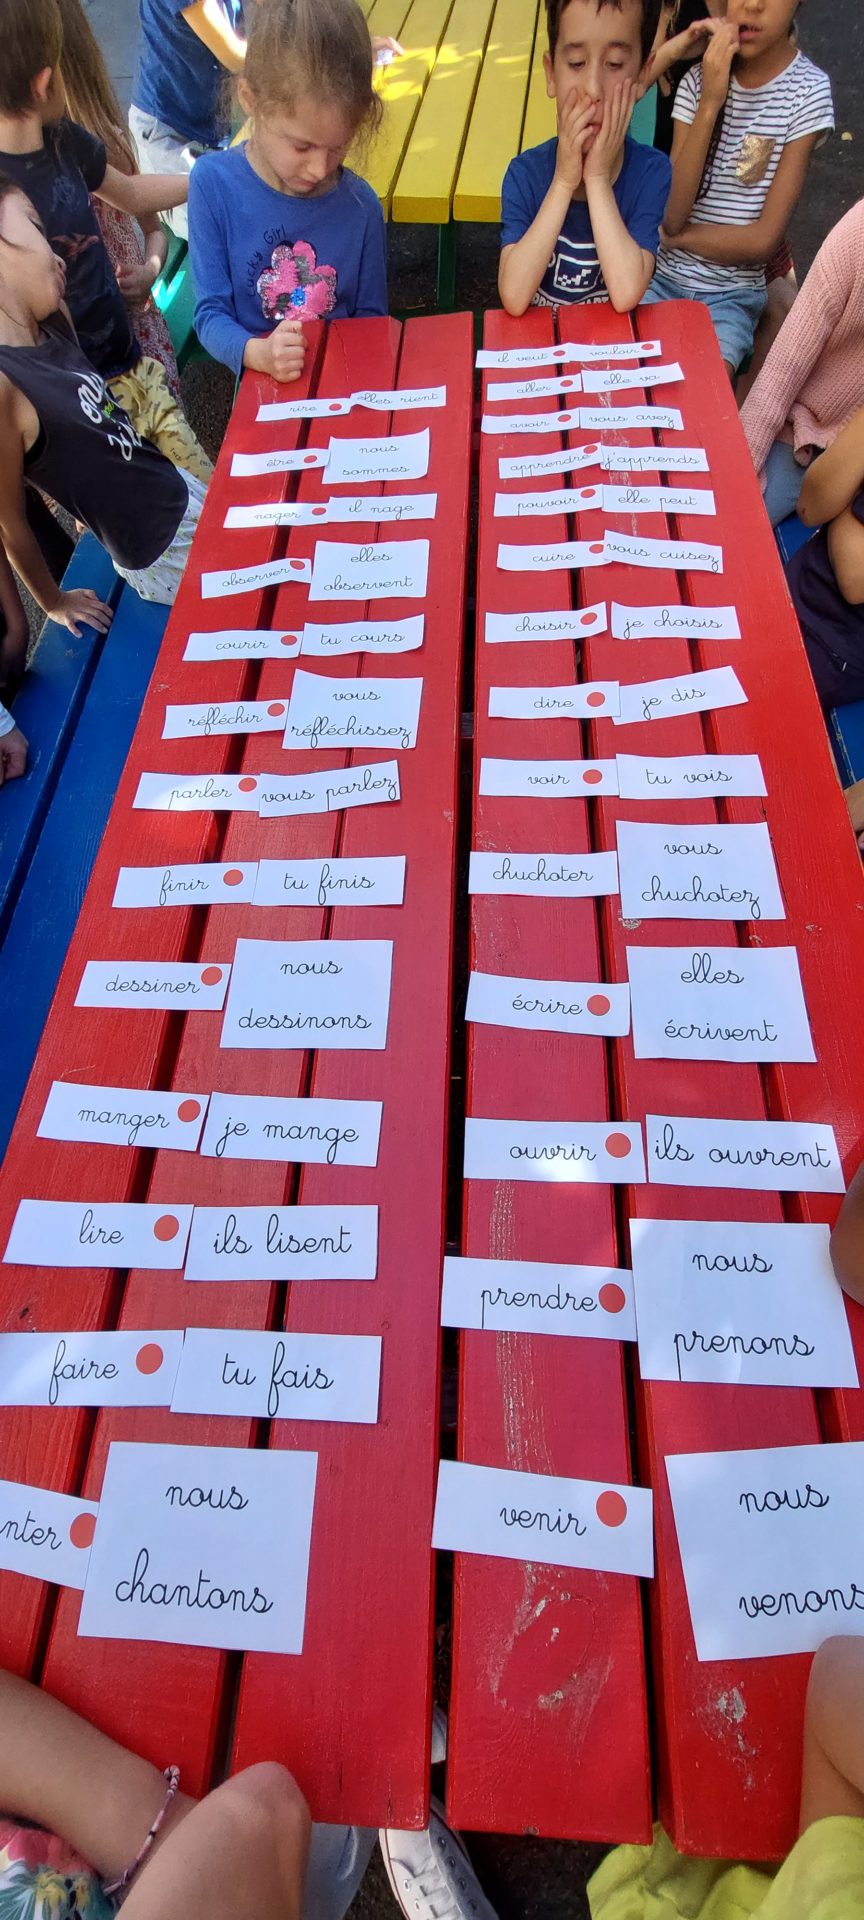 Lucky Girl
il veut vouloir
aller elle va
avoir vous avez
apprendre j'apprends
pouvoir elle peut
cuire vous cuisez
choisir je choisis
dire je dis
voir tu vois
chuchoter vous
chuchotez
écrire elles
écrivent
ouvrir ils ouvrent
prendre nous
prenons
venir nous
venons
rire elles rient
être nous
sommes
nager il nage
observer elles
observent
courir tu cours
réfléchir vous
réfléchissez
parler vous parlez
finir tu finis
dessiner nous
dessinons
manger je mange
lire ils lisent
faire tu fais
nter nous
chantons